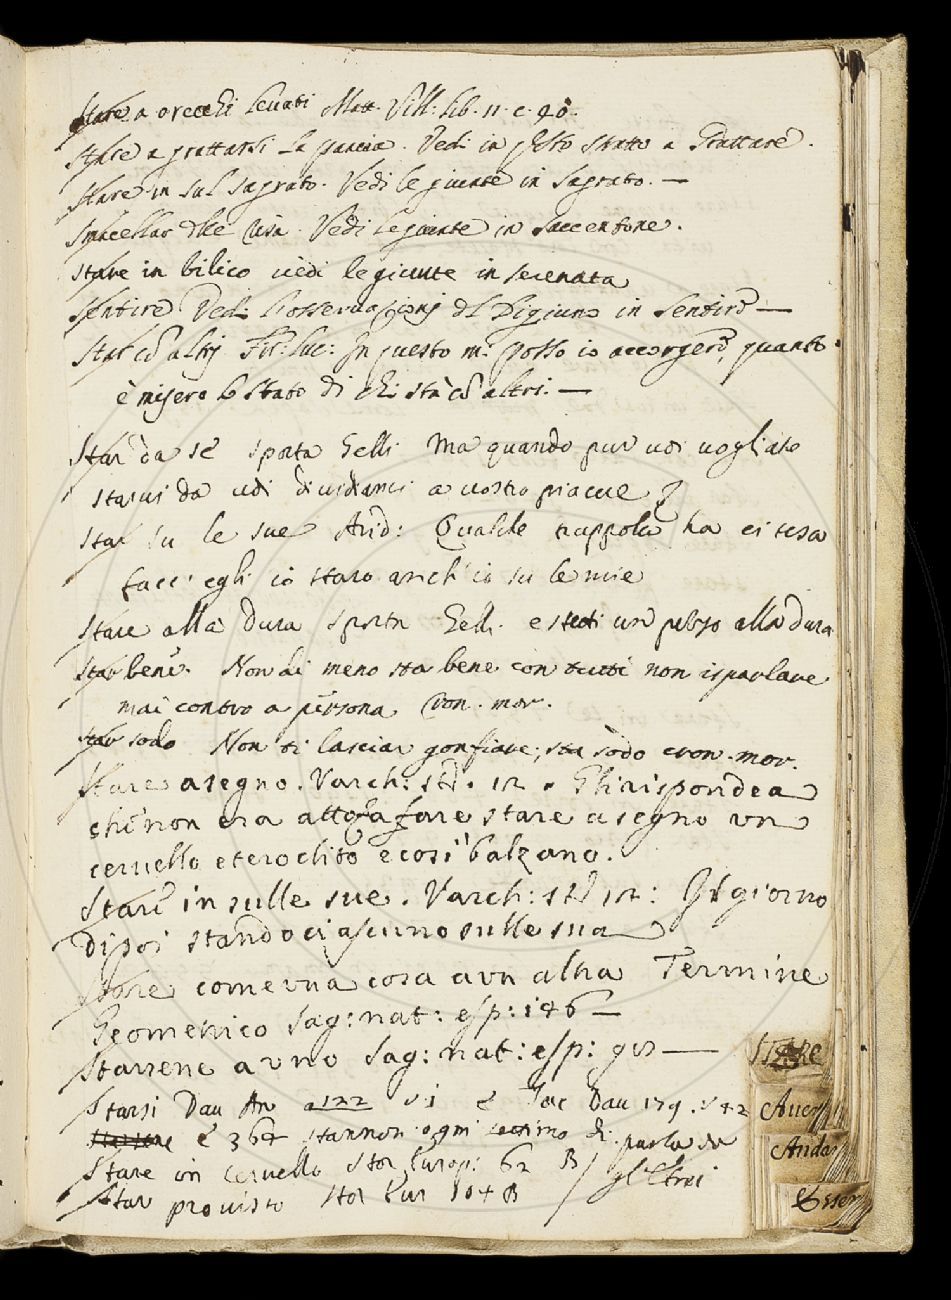 Stare a orecchi levati Matt. Vill: lib. 11. c. 90.
Stare a grattarsi la pancia. Vedi in questo tratto a Grattare.
Stare in sul sagrato. Vedi le giunte in Sagrato. —
Vedi le giunte in Saccentone.
Stare in bilico vedi le giunte in serenata
Sentire Vedi l'osservazionj del Digiuno in Sentire —
Star cō altrj Fir: Luc: In questo m: posso io accorgere, quanto
è misero lo stato di chi stà cō altri. —
Star da sè sporta Gelli Ma quando pur voi vogliate
starvi da voi dividianci a vostro piacere
Star su le sue Arid: Qualche trappola ha ei tesa
facci egli io starò anch'io su le mie
Stare alla dura sporta Gelli e stetti un pezzo alla dura
Star bene. Non di meno sta bene con tutti non isparlare
mai contro a persona Cron. mor.
Star sodo Non ti lasciar gonfiare, sta sodo cron. mor.
Stare a segno. Varch: st. 12. Gli rispondea
che non era atto a fare stare a segno un
cervello eteroclito e così balzano.
Stare in sulle sue. Varch: st. 12: Il giorno
dipoi stando ciascuno sulle sua
Stare come una cosa a un altra Termine
Geometrico Sag: nat: esp: 146 —
Starsene a uno Sag: nat: esp: —
Starsi Dav An a 122 e Dav 179. 342
e 364 stannon ogni di parla de
Stare in cervello Stor Europ: 62 B / gl'Etrei
Star provisto Stor Eur 104 B
STARE
Aver
Andar
Esser